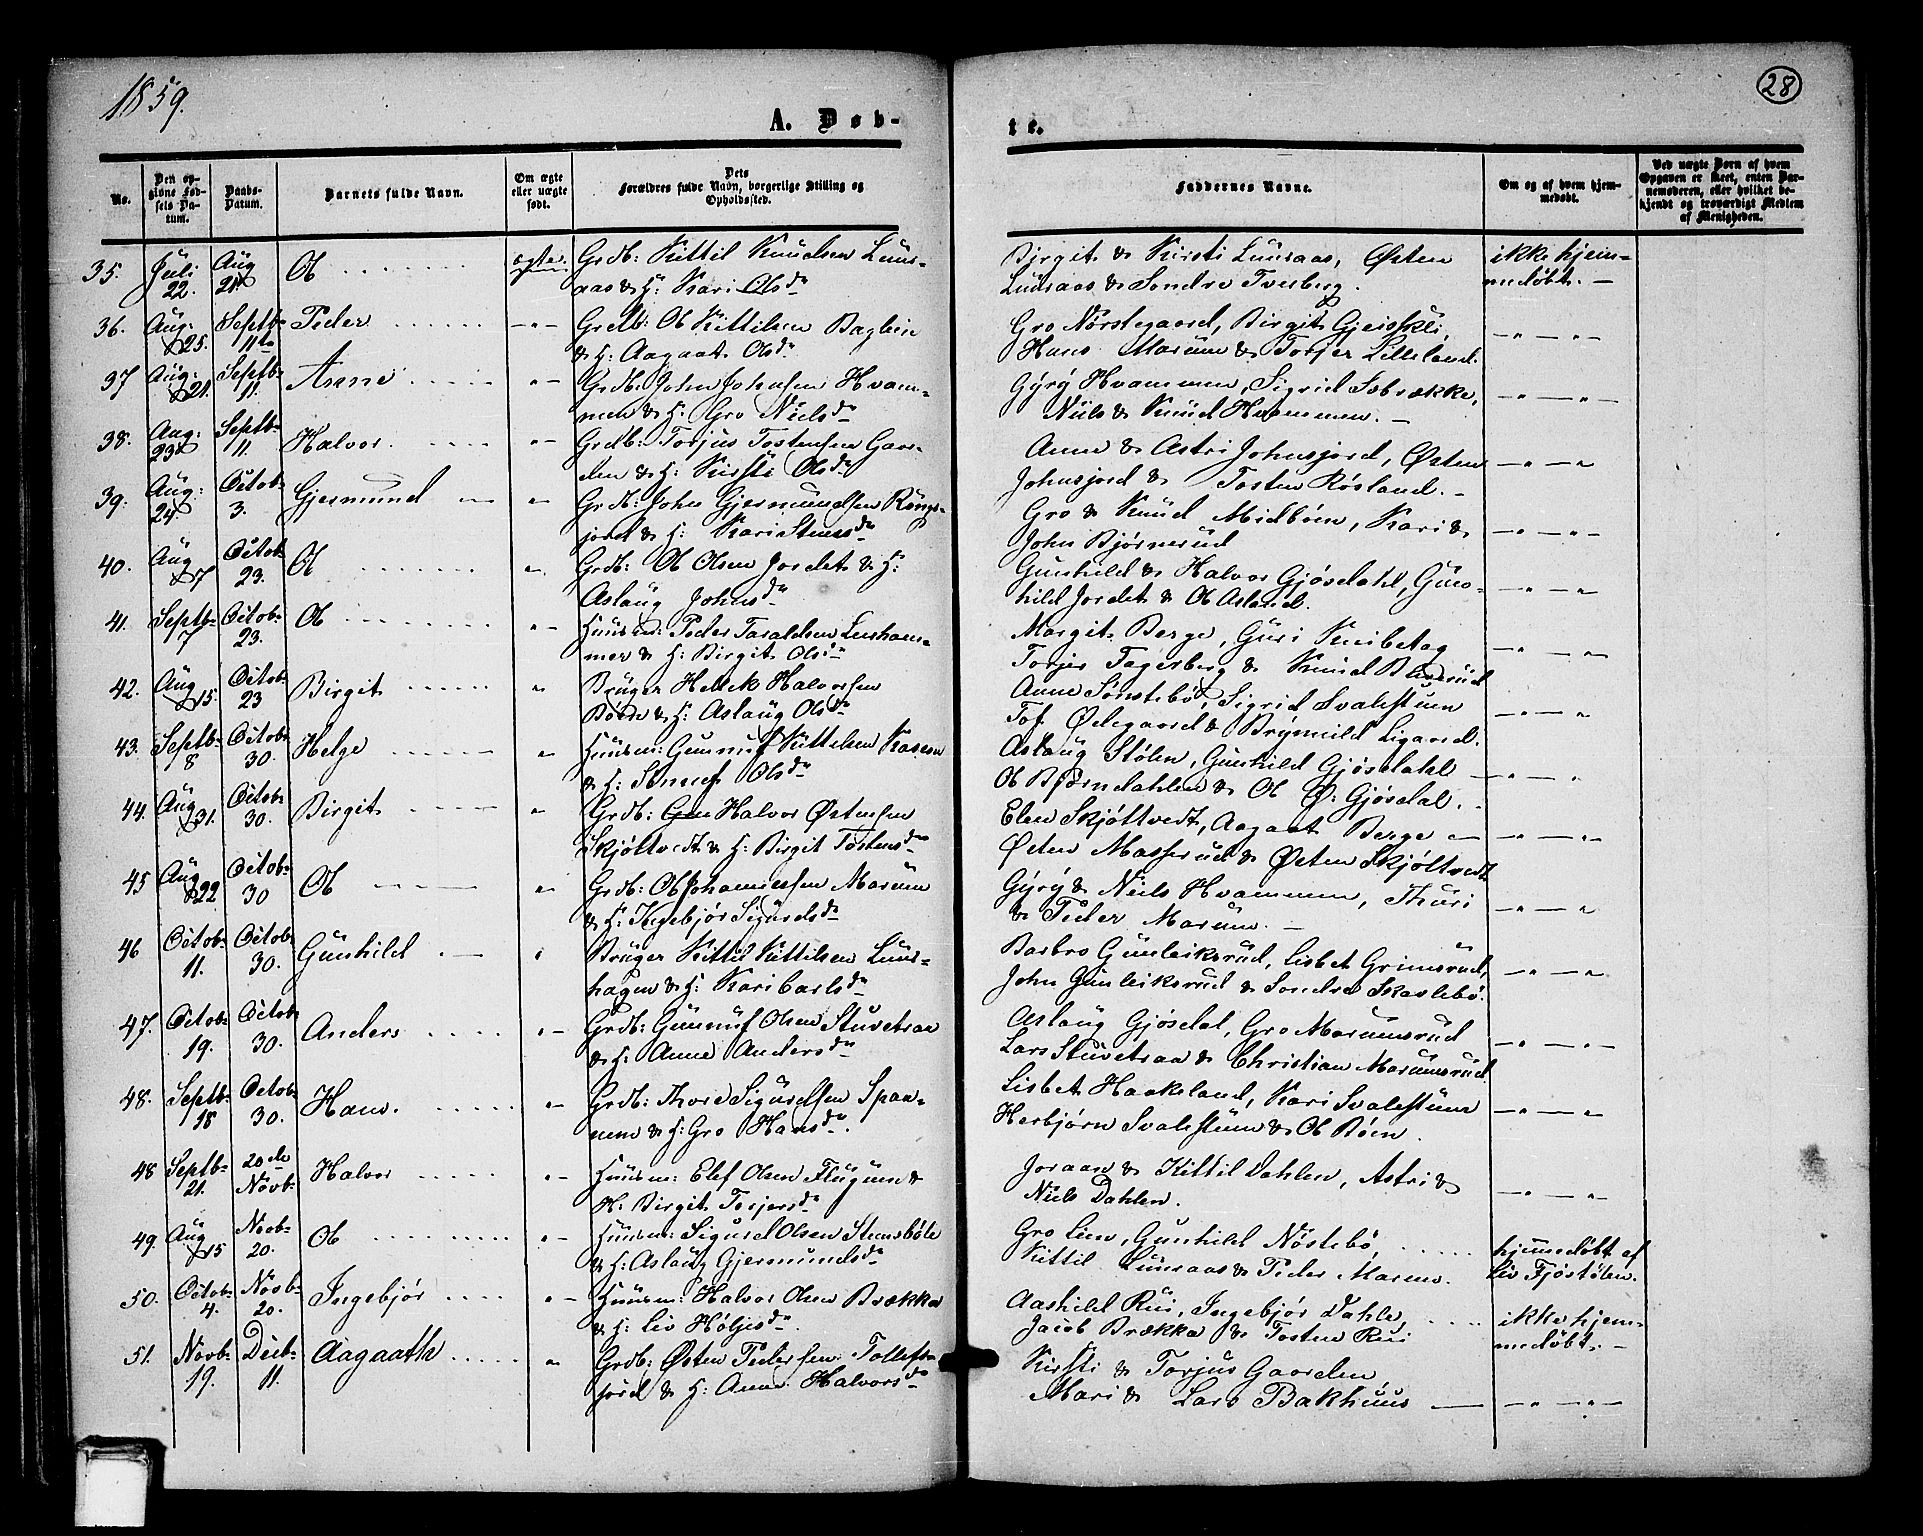 1859.
28
A. Døb-
te.
No.
Den op-
givne Fød-
sels Da-
tum.
Daabs-
Datum.
Barnets fulde Navn.
Om ægte
eller uægte
født.
Dets
Forældres fulde Navn, borgerlige Stilling og
Opholdssted.
Faddernes Navne.
Om og af hvem hjem-
medøbt.
Ved uægte Børn af hvem
Opgaven er skeet, enten Bar-
nemoderen, eller hvilket be-
kjendt og troværdigt Medlem
af Menigheden.
35. Juli 22. Aug 21 Ol ægte Grdb: Kittil Knudsen Luus-
aas & H: Kari Olsdr
Birgit & Kirsti Luusaas, Østen
Luusaas & Sondre Tveberg.
ikke hjem-
medøbt. —
36. Aug: 25. Septb- 11te Peder — " — Grdb: Ol Kittilsen Baglien
& H: Aagaat Olsdr
Gro Nørstegaard, Birgit Gjeisskli,
Hans Marum & Torjer Lilleland.
— " — " —
37 Aug: 21. Septb- 11. Anne " — Grdb: John Johnsen Hvam-
men & H: Gro Nielsdr
Gyrý Hvammen, Sigrid Sobrække,
Niels & Knud Hvammen. —
— " — " —
38. Aug: 23 Septb- 11. Halvor. " — Grdb: Torjus Tostensen Gaar-
den & H: Kirsti Olsdr
Anne & Astri Johnsjord, Østen
Johnsjord & Tosten Røsland. —
— " — "
39. Aug: 24. Octob- 3. Gjermund — " Grdb: John Gjermundsen Rings-
jord & H: Kari Steensdr
Gro & Knud Midbøen, Kari &
John Bjørnerud
— " — " —
40. Aug 7 Octob 23. Ol " Grdb: Ol Olsen Jordet & H:
Aslaug Johnsdr
Gunhild & Halvor Gjøsdahl, Gun-
hild Jordet & Ol Asland.
— " — "
41. Septb- 7 Octob- 23. Ol " — Huusm: Peder Taraldsen Lusham-
mer & H: Birgit Olsdr
Margit Berge, Guri Knibetag
Torjer Fagerberg & Knud
— " — "
42. Aug 15. Octob- 23 Birgit " Bruger Hellek Halvorsen
Bøen & H: Aslaug Olsdr
Anne Sønstebø, Sigrid Svalestuen
Tof Ødegaard & Brynild Ligaard.
— " — "
43. Septb- 8 Octob- 30. Helge " Huusm: Gunnuf Kittelsen Kaasen
& H: Olsdr
Aslaug Stølen, Gunhild Gjøsdahl
Ol Bjørndahlen & Ol Ø: Gjøsdal.
— " — "
44. Aug 31. Octob- 30. Birgit " Grdb: Halvor Østensen
Skjøltvedt & H: Birgit Tostensdr
Elen Skjøltvedt, Aagaat Berge —
Østen Masserud & Østen Skjøltvedt
— " — "
45 Aug 22 Octob- 30 Ol " Grdb: Ol Johannessen Marum
& H: Ingebjør Sigurdsdr
Gyrý & Niels Hvammen, Thuri
& Peder Marum. —
— " — "
46 Octob- 11. Octob- 30. Gunhild " Bruger Kittil Kittilsen Luus-
hagen & H: Kari Carlsdr
Barbro Gunleiksrud, Lisbet Grimsrud,
John Gunleiksrud & Sondre Skarlebø.
— " — "
47. Octob- 19. Octob- 30. Anders " — Grdb: Gunnuf Olsen Stuvetraa
& H: Anne Andersdr
Aslaug Gjøsdal, Gro Marumsrud
Lars Stuvetraa & Christian Marumsrud.
— " — " —
48. Septb- 18 Octob- 30. Hans. " — Grdb: Thore Sigurdsen Span-
nem & H: Gro Hansdr.
Lisbet Haakeland, Kari Svalestuen
Herbjørn Svalestuen & Ol Bøen.
— " — "
48 Septb- 21. 20de Novb- Halvor " — Huusm: Elef Olsen Flugum &
H. Birgit Torjersdr
Joraan & Kittil Dahlen, Astri &
Niels Dahlen.
— " — "
49. Aug 15 Novb- 20. Ol " — Huusm: Sigurd Olsen Steensbøle
& H: Aslaug Gjermundsdr
Gro Lien, Gunhild Nøstebø,
Kittil Luusaas & Peder Marum.
hjemmedøbt af
Liv Fjøstølen.
50. Octob- 4. Novb- 20. Ingebjør " — Huusm: Halvor Olsen Brække
& H: Liv Høljesdr.
Aashild Rui, Ingebjør Dahle,
Jacob Brække & Tosten Rui
ikke hjem-
medøbt. —
51. Novb- 19. Decb- 11. Aagaath " Grdb: Østen Pedersen Tollefs-
jord & H: Anne Halvorsdr
Kirsti & Torjus Gaarden,
Mari & Lars Bakhuus —
— " — " —